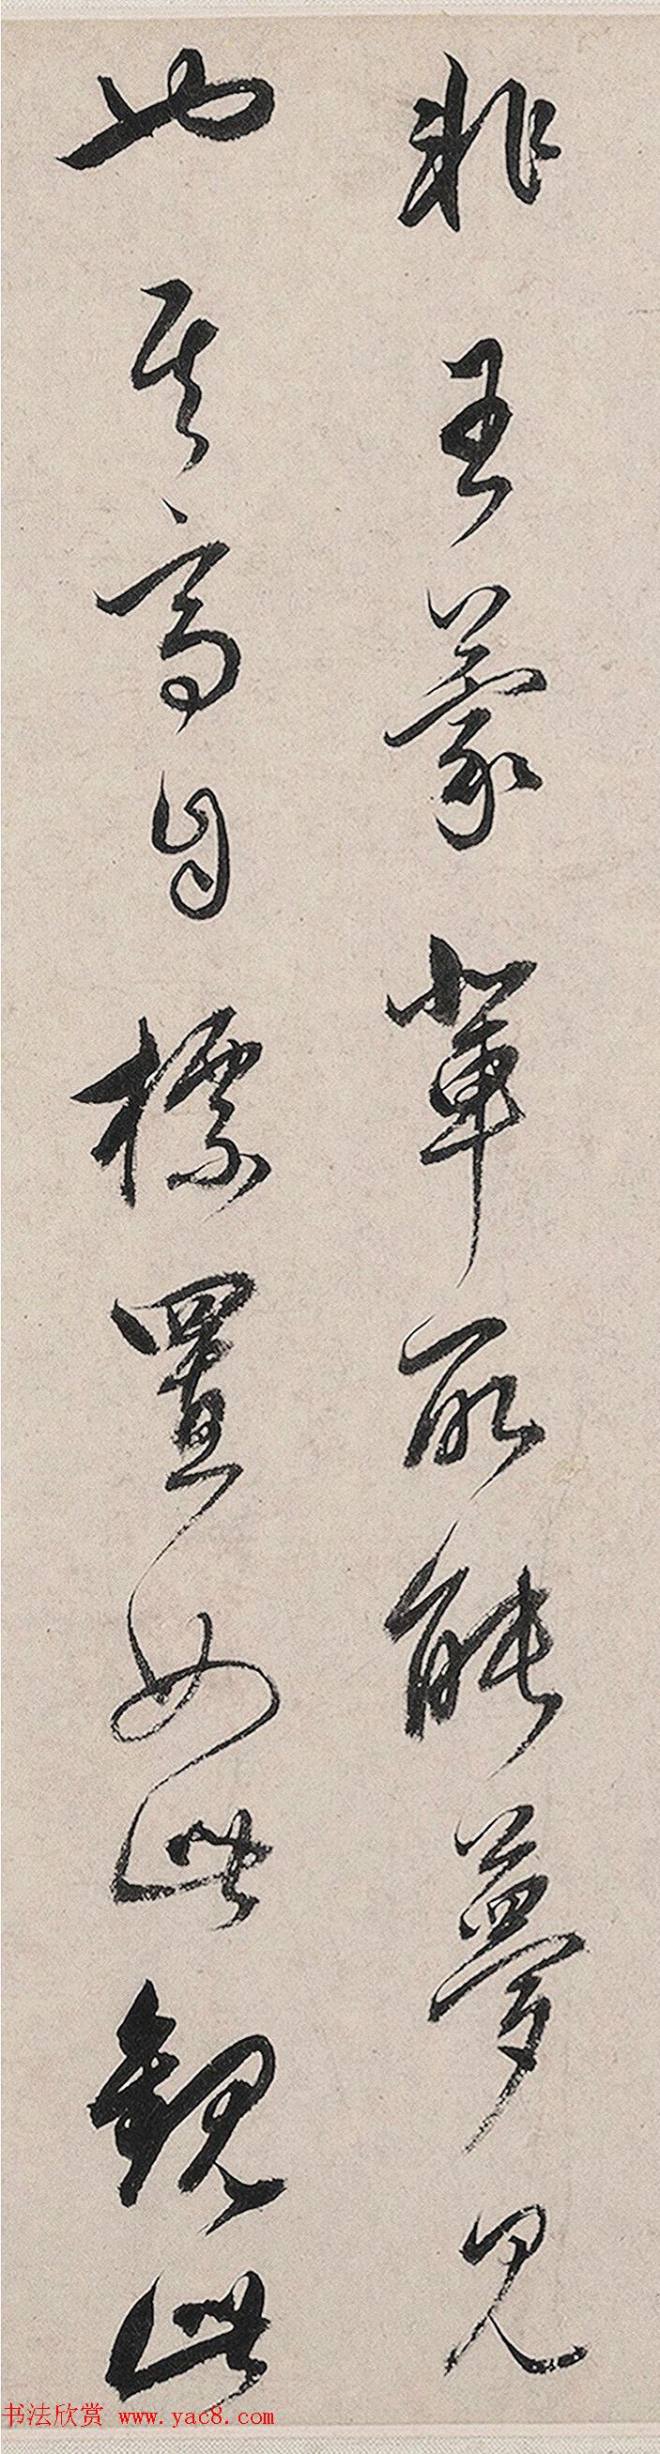 非王蒙輩所能夢見
也其高自標置如此觀此
书法欣赏 www.yac8.com